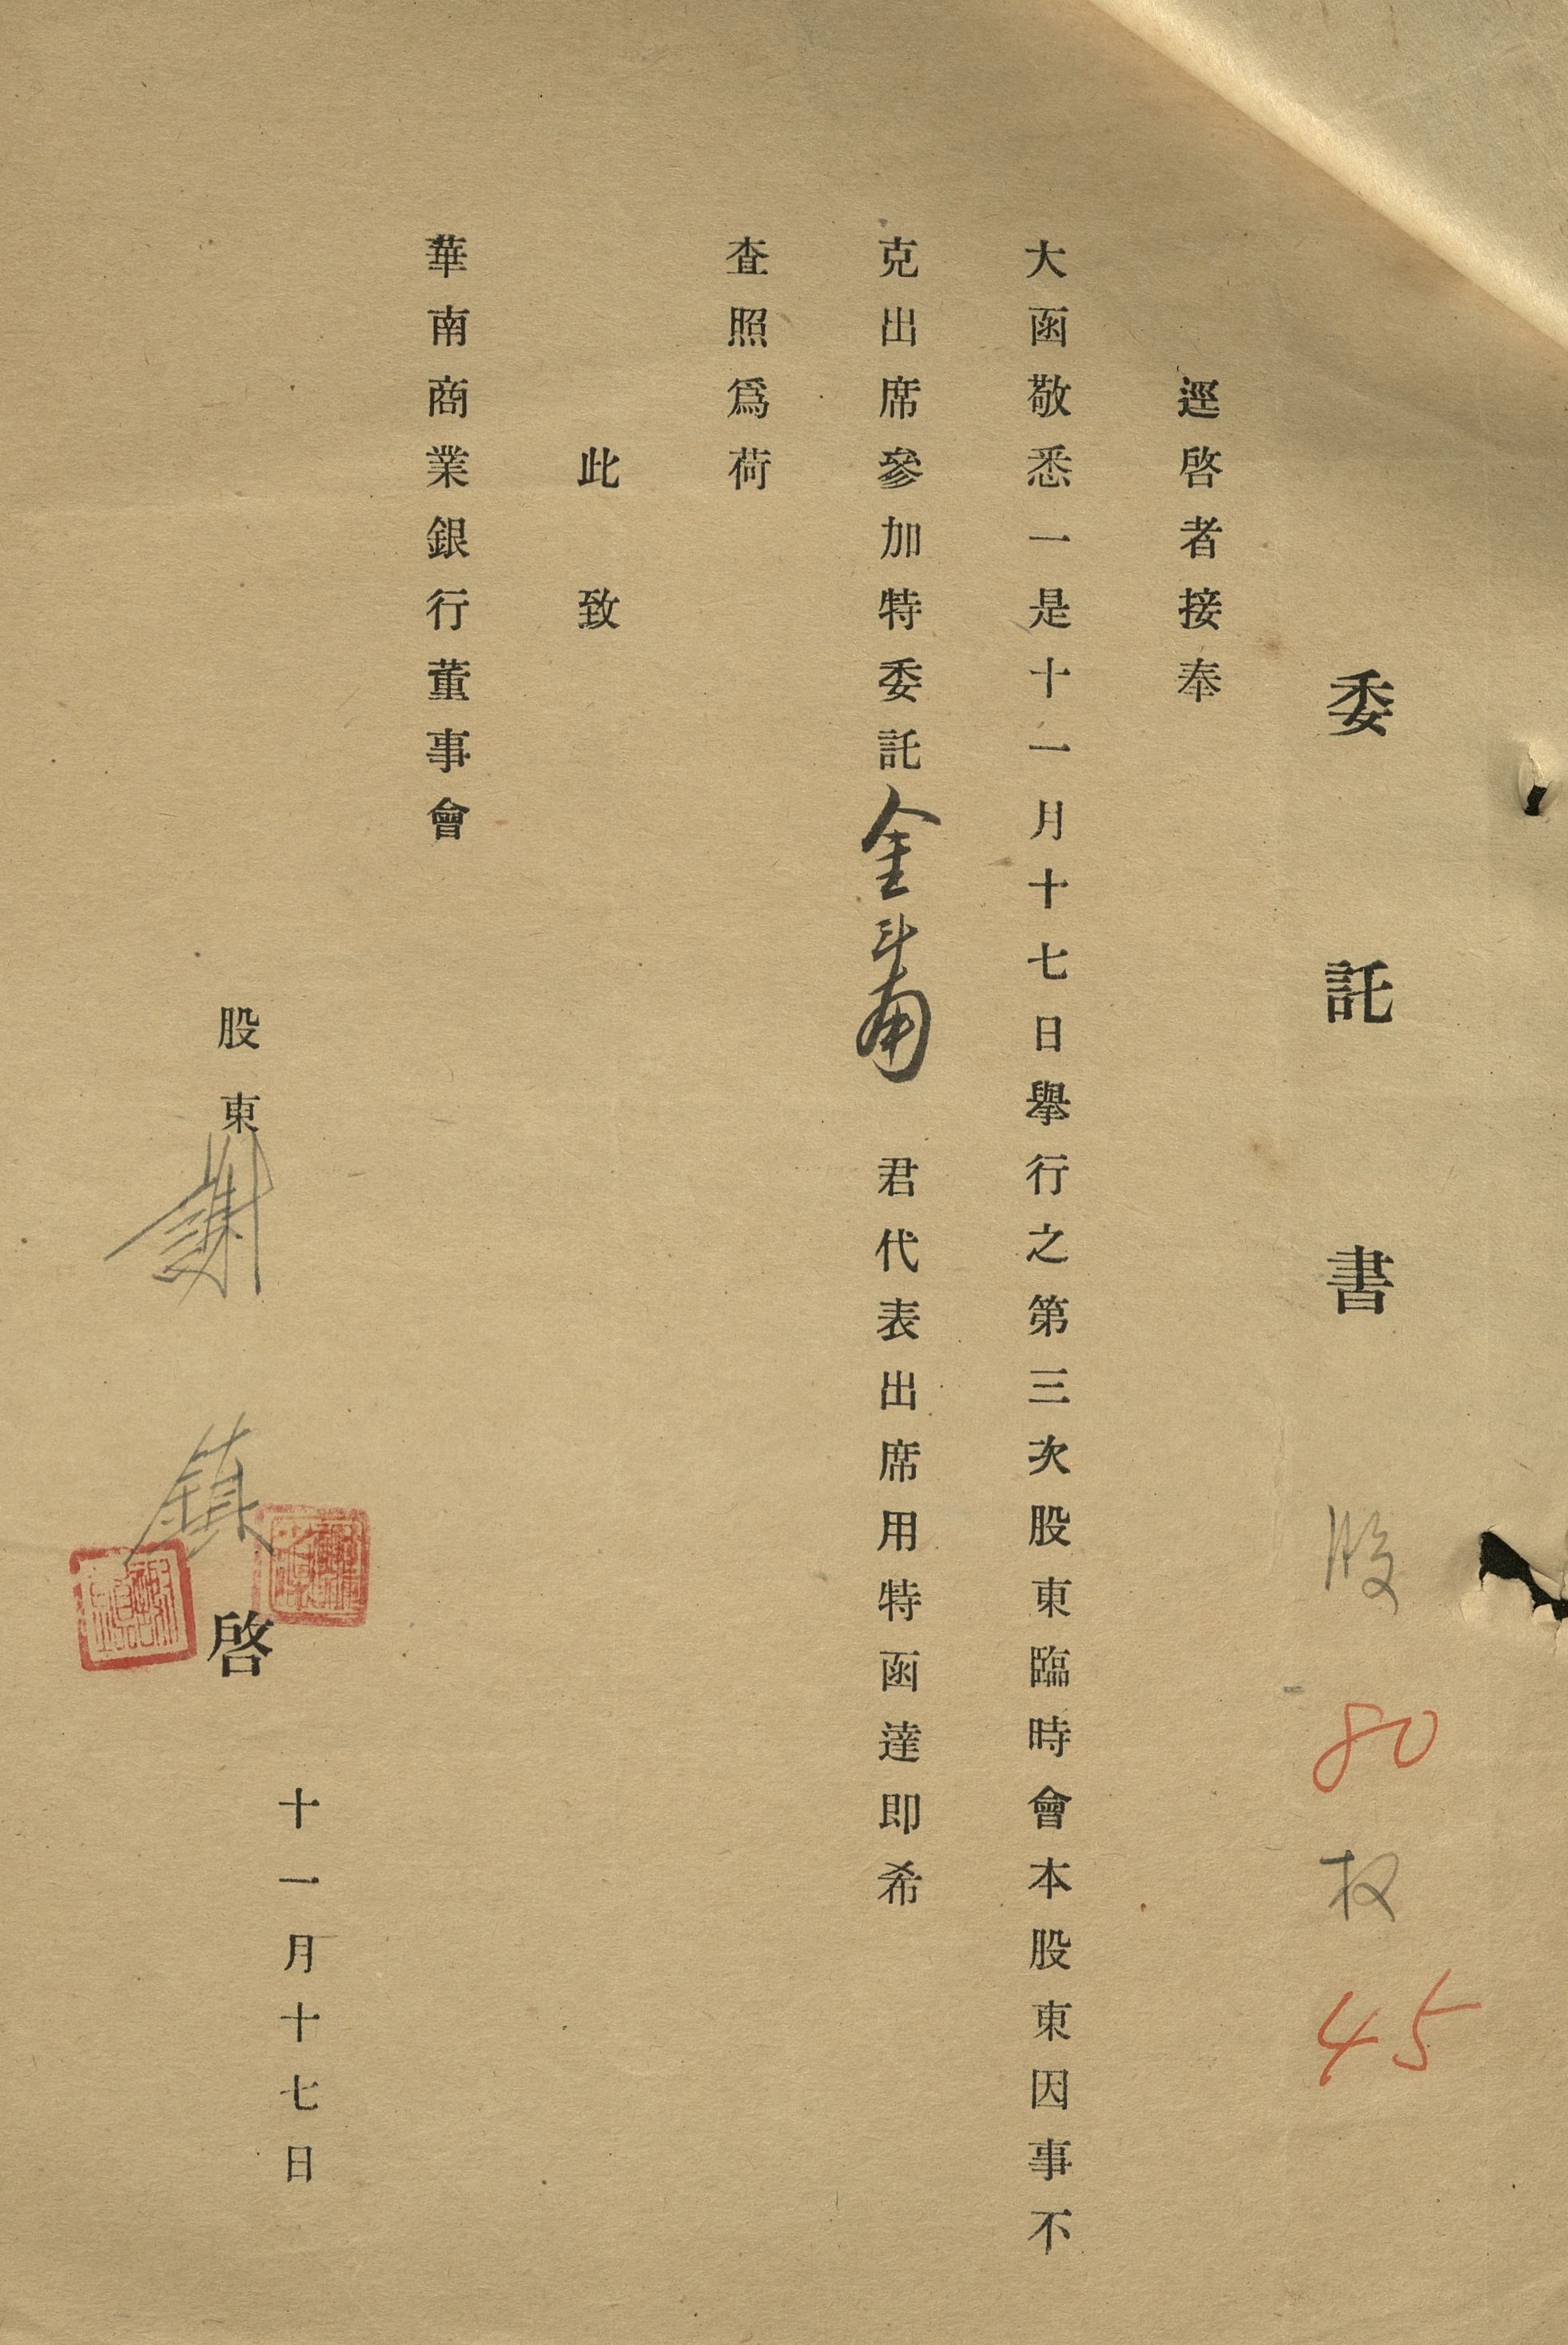 委託書
股 80 权 45
逕啓者接奉
大函敬悉一是十一月十七日舉行之第三次股東臨時會本股東因事不
克出席參加特委託金斗甫 君代表出席用特函達即希
查照爲荷
此致
華南商業銀行董事會
股東謝 鎮 啓
十一月十七日